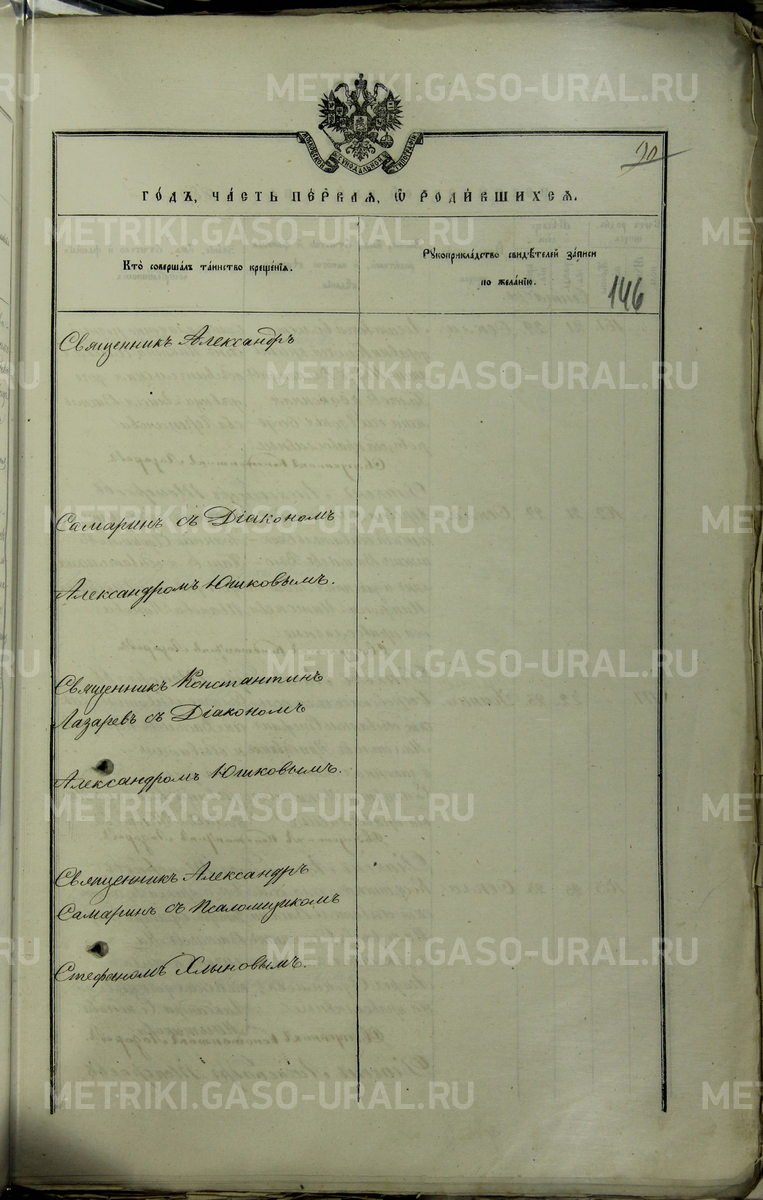 МОСКОВСКОЙ СУНОДАЛЬНОЙ ТИПОГРАФІИ
90
ГО́ДЪ, ЧА́СТЬ ПЕ́РВАЯ, Ѡ РОДИ́ВШИХСЯ.
Кто̀ соверша́лъ та́инство креще́нїя.
Рꙋкоприкла́дство свидѣ́телей за́писи
по жела́нїю.
146
Священникъ Александръ
Самаринъ съ Діакономъ
Александромъ Юшковымъ.
Священникъ Константинъ
Лазаревъ съ Діакономъ
Александромъ Юшковымъ.
Священникъ Александръ
Самаринъ съ Псаломщикомъ
Стефаномъ Хлыновымъ.
METRIKI.GASO-URAL.RU